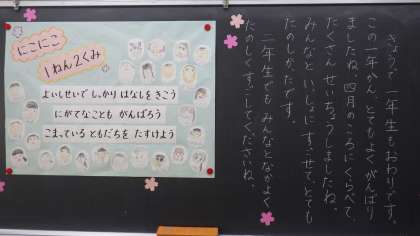 にこにこ
1ねん2くみ
よいしせいで しっかり はなしを きこう
にがてなことも がんばろう
こまっている ともだちを たすけよう
きょうで 一年生もおわりです。
この一年かん、とてもよく がんばり
ましたね。四月のころにくらべて、
たくさん せいちょうしましたね。
みんなと いっしょに すごせて、とても
たのしかったです。
二年生でも みんなとなかよく
たのしくすごしてくださいね。